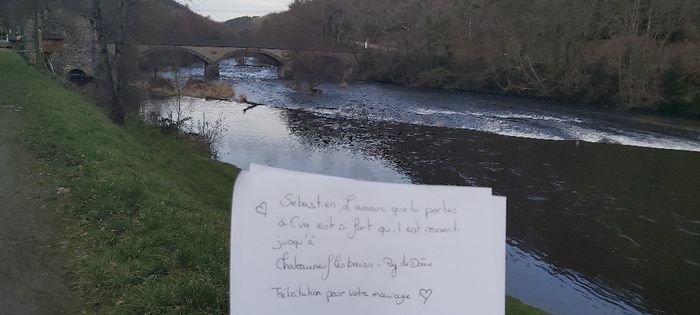 ♡ Sébastien, L'amour que tu portes
à Eva est si fort qu'il est ressenti
jusqu'à
Chateauneuf les bains - Puy de Dôme
Félicitation pour votre mariage ♡